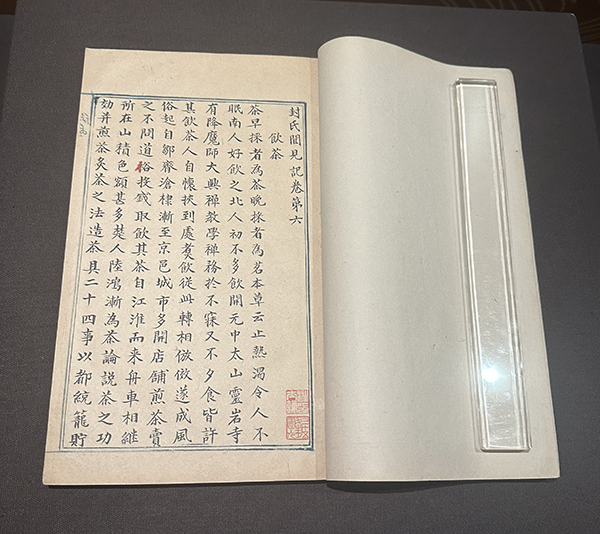 封氏聞見記卷第六
飲茶
茶早採者為茶晚採者為茗本草云止熱渴令人不
眠南人好飲之北人初不多飲開元中太山靈岩寺
有降魔師大興禪教學禪務於不寐又不夕食皆許
其飲茶人自懷挾到處煑飲從此轉相倣傚遂成風
俗起自鄒齊滄棣漸至京邑城市多開店舖煎茶賣
之不問道俗投錢取飲其茶自江淮而來舟車相継
所在山積色額甚多楚人陸鴻漸為茶論說茶之功
効并煎茶炙茶之法造茶具二十四事以都統籠貯